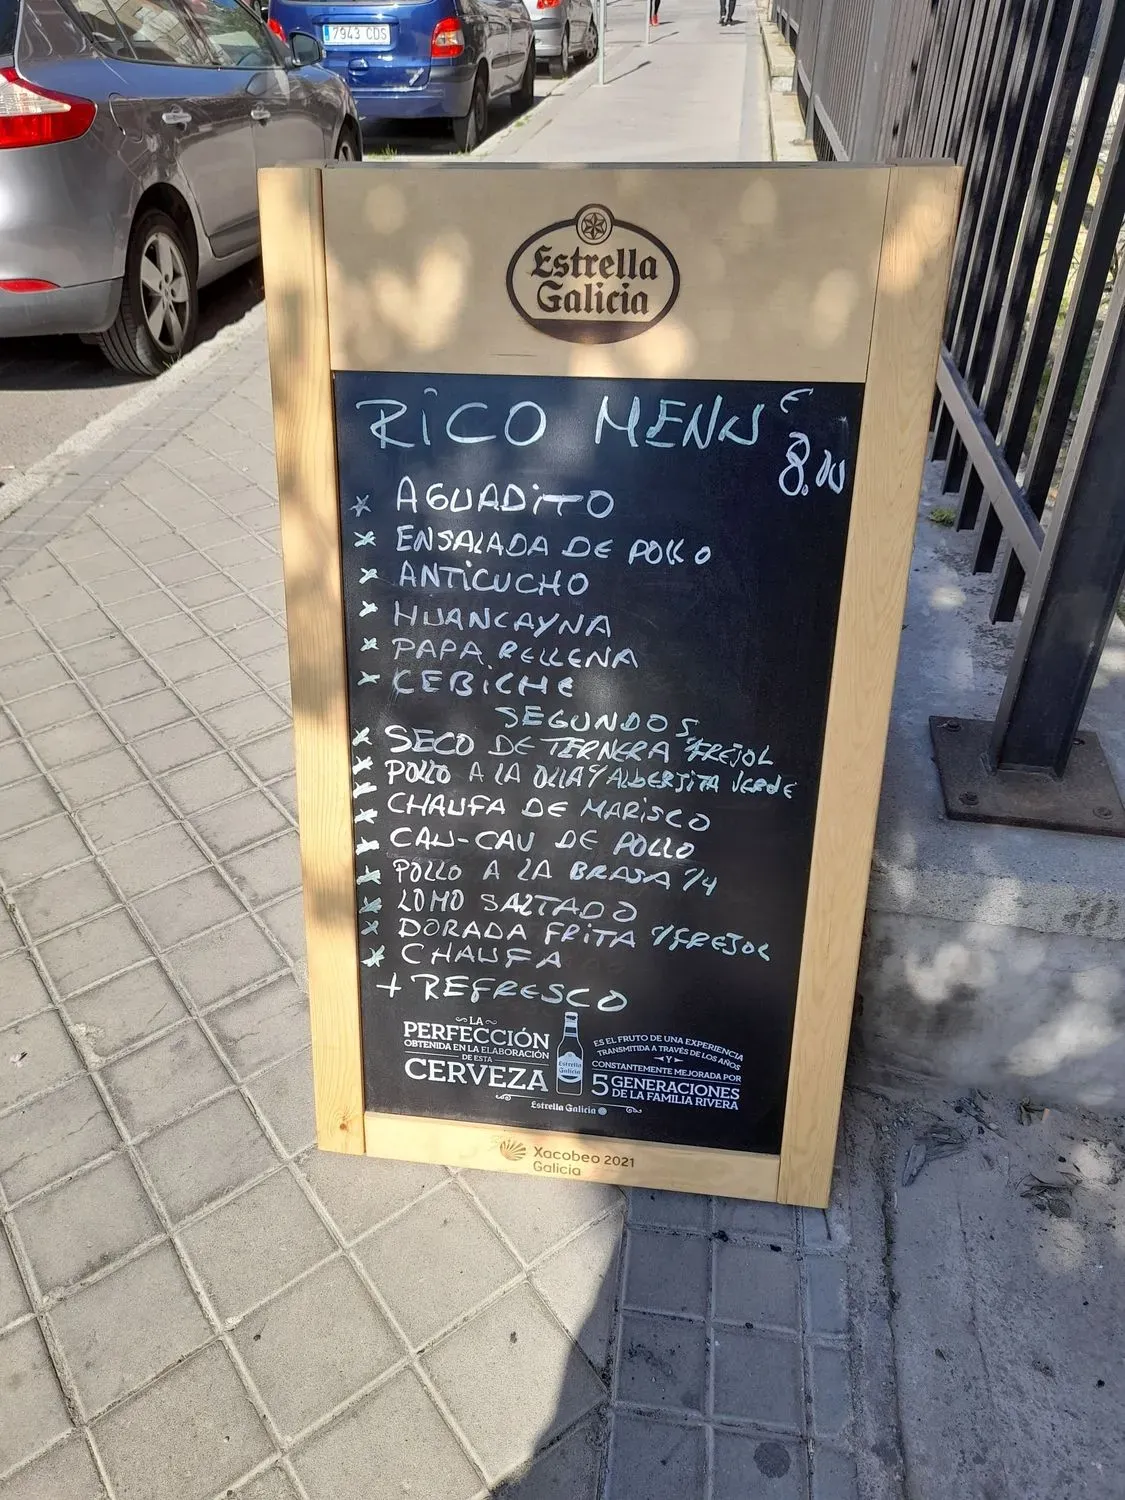 7943 CDS
Estrella
Galicia
RICO MENU €
8.00
* AGUADITO
* ENSALADA DE POLLO
* ANTICUCHO
* HUANCAYNA
* PAPA RELLENA
* CEBICHE
SEGUNDOS
* SECO DE TERNERA Y FREJOL
* POLLO A LA OLLA Y ALBERJITA VERDE
* CHAUFA DE MARISCO
* CAU-CAU DE POLLO
* POLLO A LA BRASA 1/4
* LOMO SALTADO
* DORADA FRITA Y FREJOL
* CHAUFA
+ REFRESCO
LA
PERFECCIÓN
OBTENIDA EN LA ELABORACIÓN
DE ESTA
CERVEZA
Estrella
Galicia
ES EL FRUTO DE UNA EXPERIENCIA
TRANSMITIDA A TRAVÉS DE LOS AÑOS
Y
CONSTANTEMENTE MEJORADA POR
5 GENERACIONES
DE LA FAMILIA RIVERA
Estrella Galicia
Xacobeo 2021
Galicia